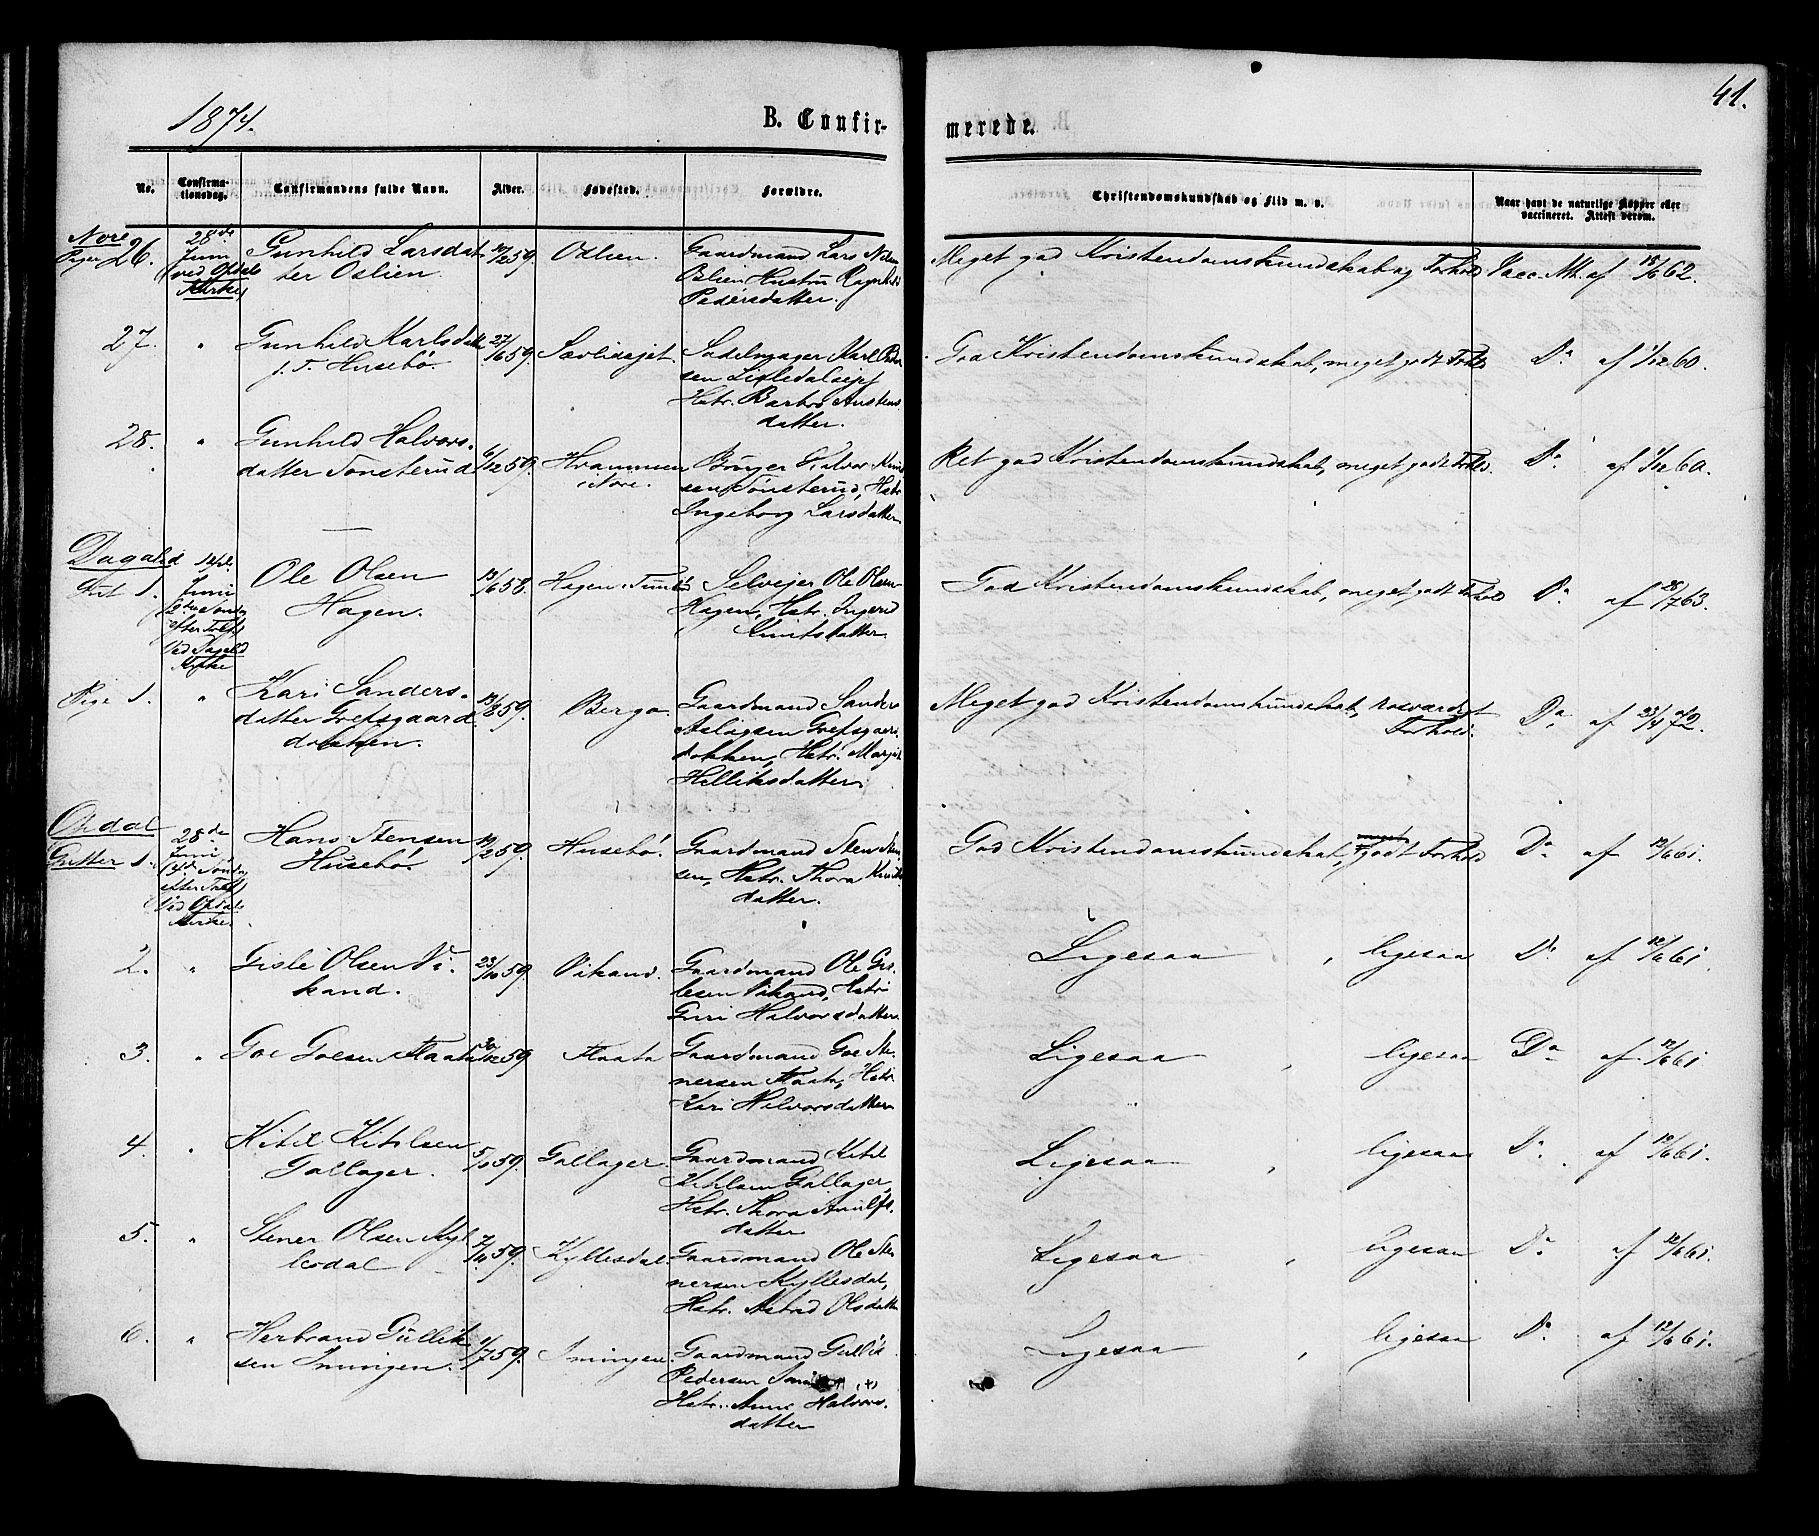 41.
1874.
B. Confir-
merede.
No.
Confirma-
tionsdag.
Confirmandens fulde Navn.
Alder.
Fødested.
Forældre.
Christendomskundskab og Flid m. v.
Naar havt de naturlige Kopper eller
vaccineret. Attest derom.
Nore
Piger 26.
28de
Juni
ved Opdals
Kirke
Gunhild Larsdat-
ter Oslien
59.
Oslien.
Gaardmand Lars
Oslien Hustru Ragnhild
Pedersdatter.
Meget god Kristendomskundskab og Forhold
Vacc. Att. af 18/6 62.
27.
"
Gunhild Karlsdatt
p. T. Husebø.
27/6 59.
Gaardmand Karl
Hstr. Barbro Austens
datter.
God Kristendomskundskab, meget godt Forhold
Do af 1/12 60.
28.
"
Gunhild Halvors-
datter Tønsterud
6/12 59.
i Nore.
Halvor Knud
sen Tønsterud, Hstr
Ingeborg Larsdatter
Ret god Kristendomskundskab, meget godt Forhold.
Do af 1/12 60.
Dagalid
Gut 1.
14de
Juni
2den Sønda
efter Tref.
ved Dagalid
Kirke
Ole Olsen
Hagen.
13/6 58.
Hagen
Selvejer Ole Olsen
Hagen, Hstr. Ingerid
Knutsdatter
God Kristendomskundskab, meget godt Forhold
Do af 28/7 63.
Pige 1.
"
Kari Sanders-
datter Grefsgaard
dokken.
13/8 59.
Berga.
Gaardmand Sander
Aslagsen Grefsgaard
dokken, Hstr. Margit
Helliksdatter.
Meget god Kristendomskundskab, rosværdigt
Forhold.
Do af 23/4 72.
Opdal
Gutter 1.
28de
Juni
4de Sønda
efter Tref.
ved Opdals
Kirke.
Hans Stensen
Husebø.
59.
Husebø.
Gaardmand Sten
sen, Hstr. Thora Knuds
datter.
God Kristendomskundskab, godt Forhold
Do af 12/6 61.
2.
"
Gisle Olsen Vi-
kand.
23/10 59.
Vikand.
Gaardmand Ole Gis-
lesen Vikand, Hstr
Guri Halvorsdatter.
Ligesaa , ligesaa
Do af 12/6 61.
3.
"
Goe Goesen Staata
30/12 59.
Staata
Gaardmand Goe Ste-
nersen Staata, Hstr
Kari Halvorsdatter
Ligesaa , ligesaa
Do af 12/6 61.
4.
"
Kitil Kitilsen
Gallager.
5/10 59.
Gallager.
Gaardmand Kitil
Kitilsen Gallager,
Hstr. Thora Arnulfs
datter
Ligesaa , ligesaa
Do af 12/6 61.
5.
"
Stener Olsen Kyl-
lesdal
7/11 59.
Kyllesdal.
Gaardmand Ole Ste-
nersen Kyllesdal,
Hstr. Astrid Olsdatter
Ligesaa , ligesaa
Do af 12/6 61.
6.
"
Herbrand Gullik
sen Imingen.
1/7 59.
Imingen.
Gaardmand Gullik
Pedersen
Hstr. Anne Halvors
datter
Ligesaa , ligesaa
Do af 12/6 61.